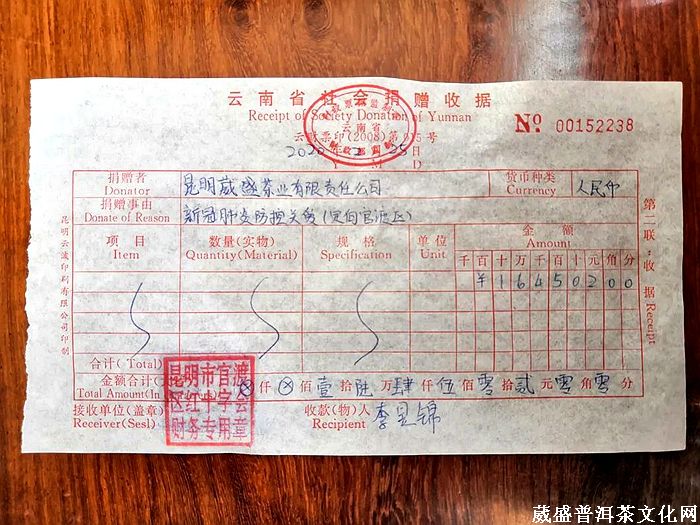 云南省社会捐赠收据
Receipt of Society Donation of Yunnan
№ 00152238
云财票印(2008)第
2020年2月25日
Y M D
捐赠者 昆明葳盛茶业有限责任公司 货币种类 人民币
Donator Currency
捐赠事由 新冠肺炎防控关爱(定向官渡区)
Donate of Reason
项目 数量(实物) 规格 单位 金额
Item Quantity(Material) Specification Unit Amount
千百十万千百十元角分
¥164502００
合计(Total)
金额合计 ⊗仟⊗佰壹拾陆万肆仟伍佰零拾贰元零角零分
Total Amount(In
接收单位(盖章) 收款(物)人 李昱锦
Receiver(Sesl) Recipient
昆明市官渡
区红十字会
财务专用章
昆明云波印刷有限公司印制
第二联:收据 Receipt
葳盛普洱茶文化网